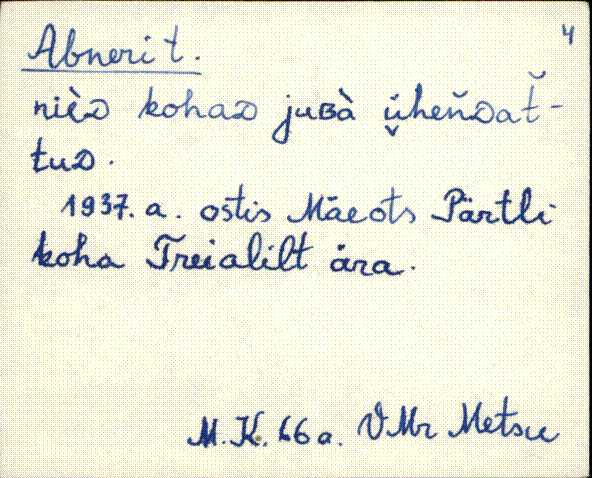 4
Abneri t.
nièᴅ kohaᴅ juʙà ǜheňᴅat̆-
tuᴅ.
1937. a. ostis Mäeots Pärtli
koha Treialilt ära.
M. K. 66 a. VMr Metsu